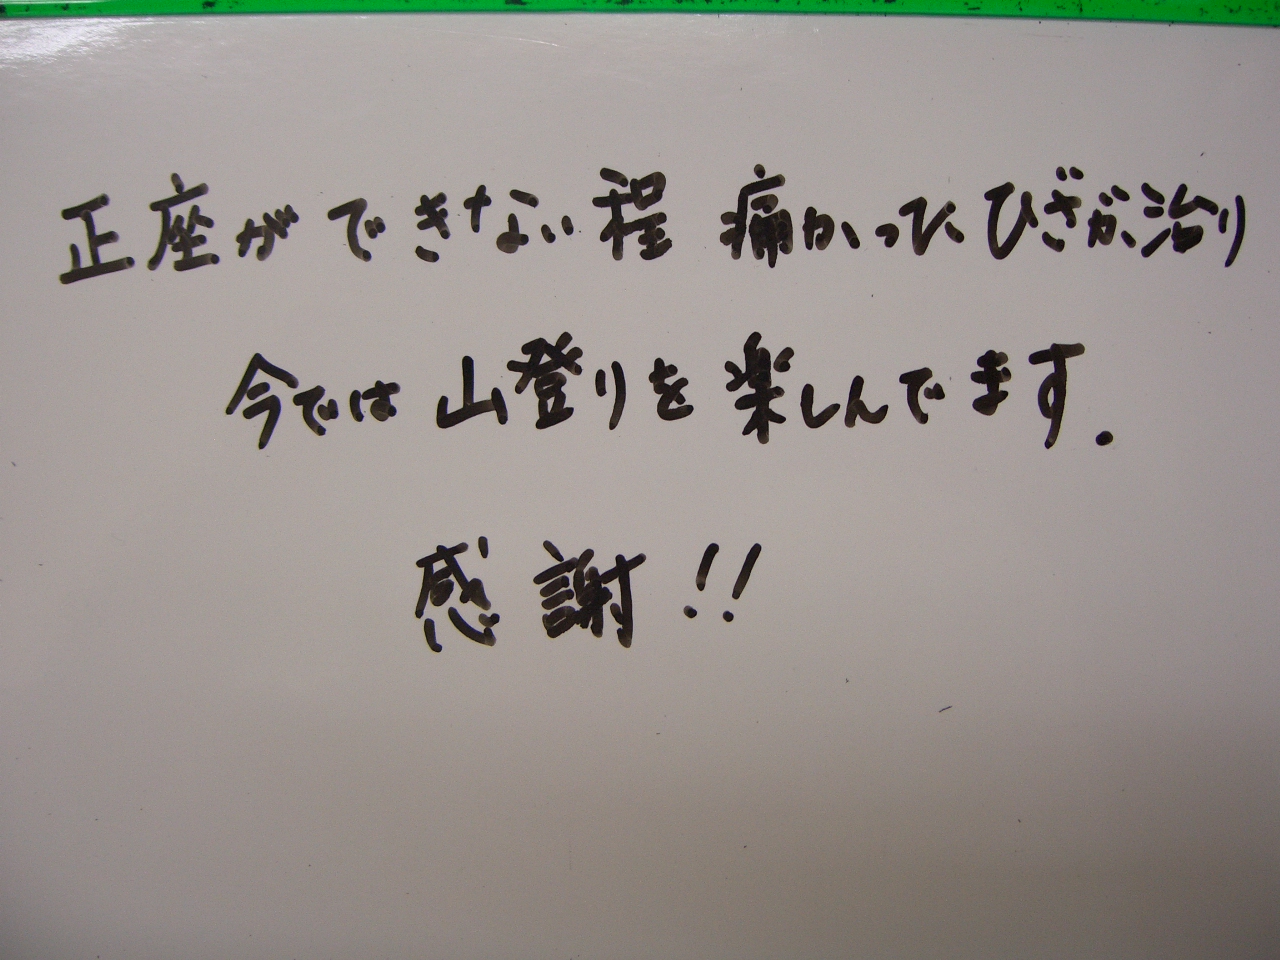 正座ができない程 痛かったひざが治り
今では山登りを楽しんでます.
感謝!!